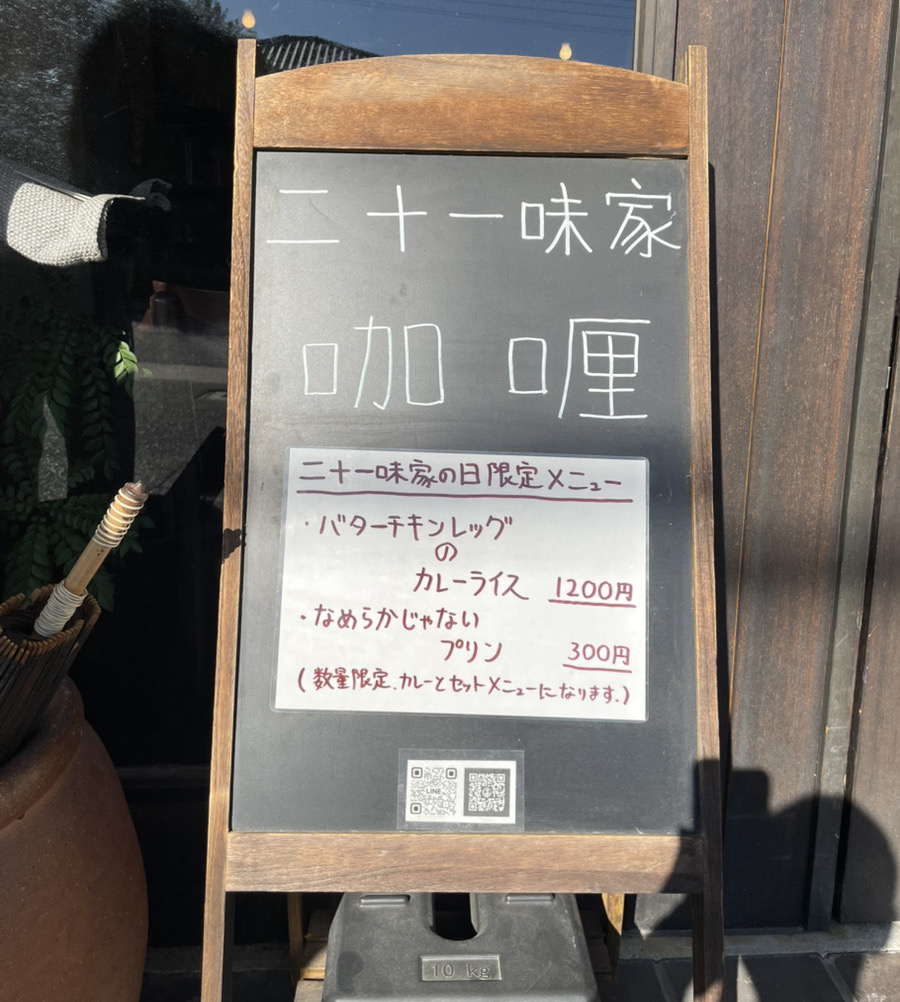 二十一味家
咖喱
二十一味家の日限定メニュー
・バターチキンレッグ
の
カレーライス 1200円
・なめらかじゃない
プリン 300円
(数量限定、カレーとセットメニューになります。)
LINE
10 kg